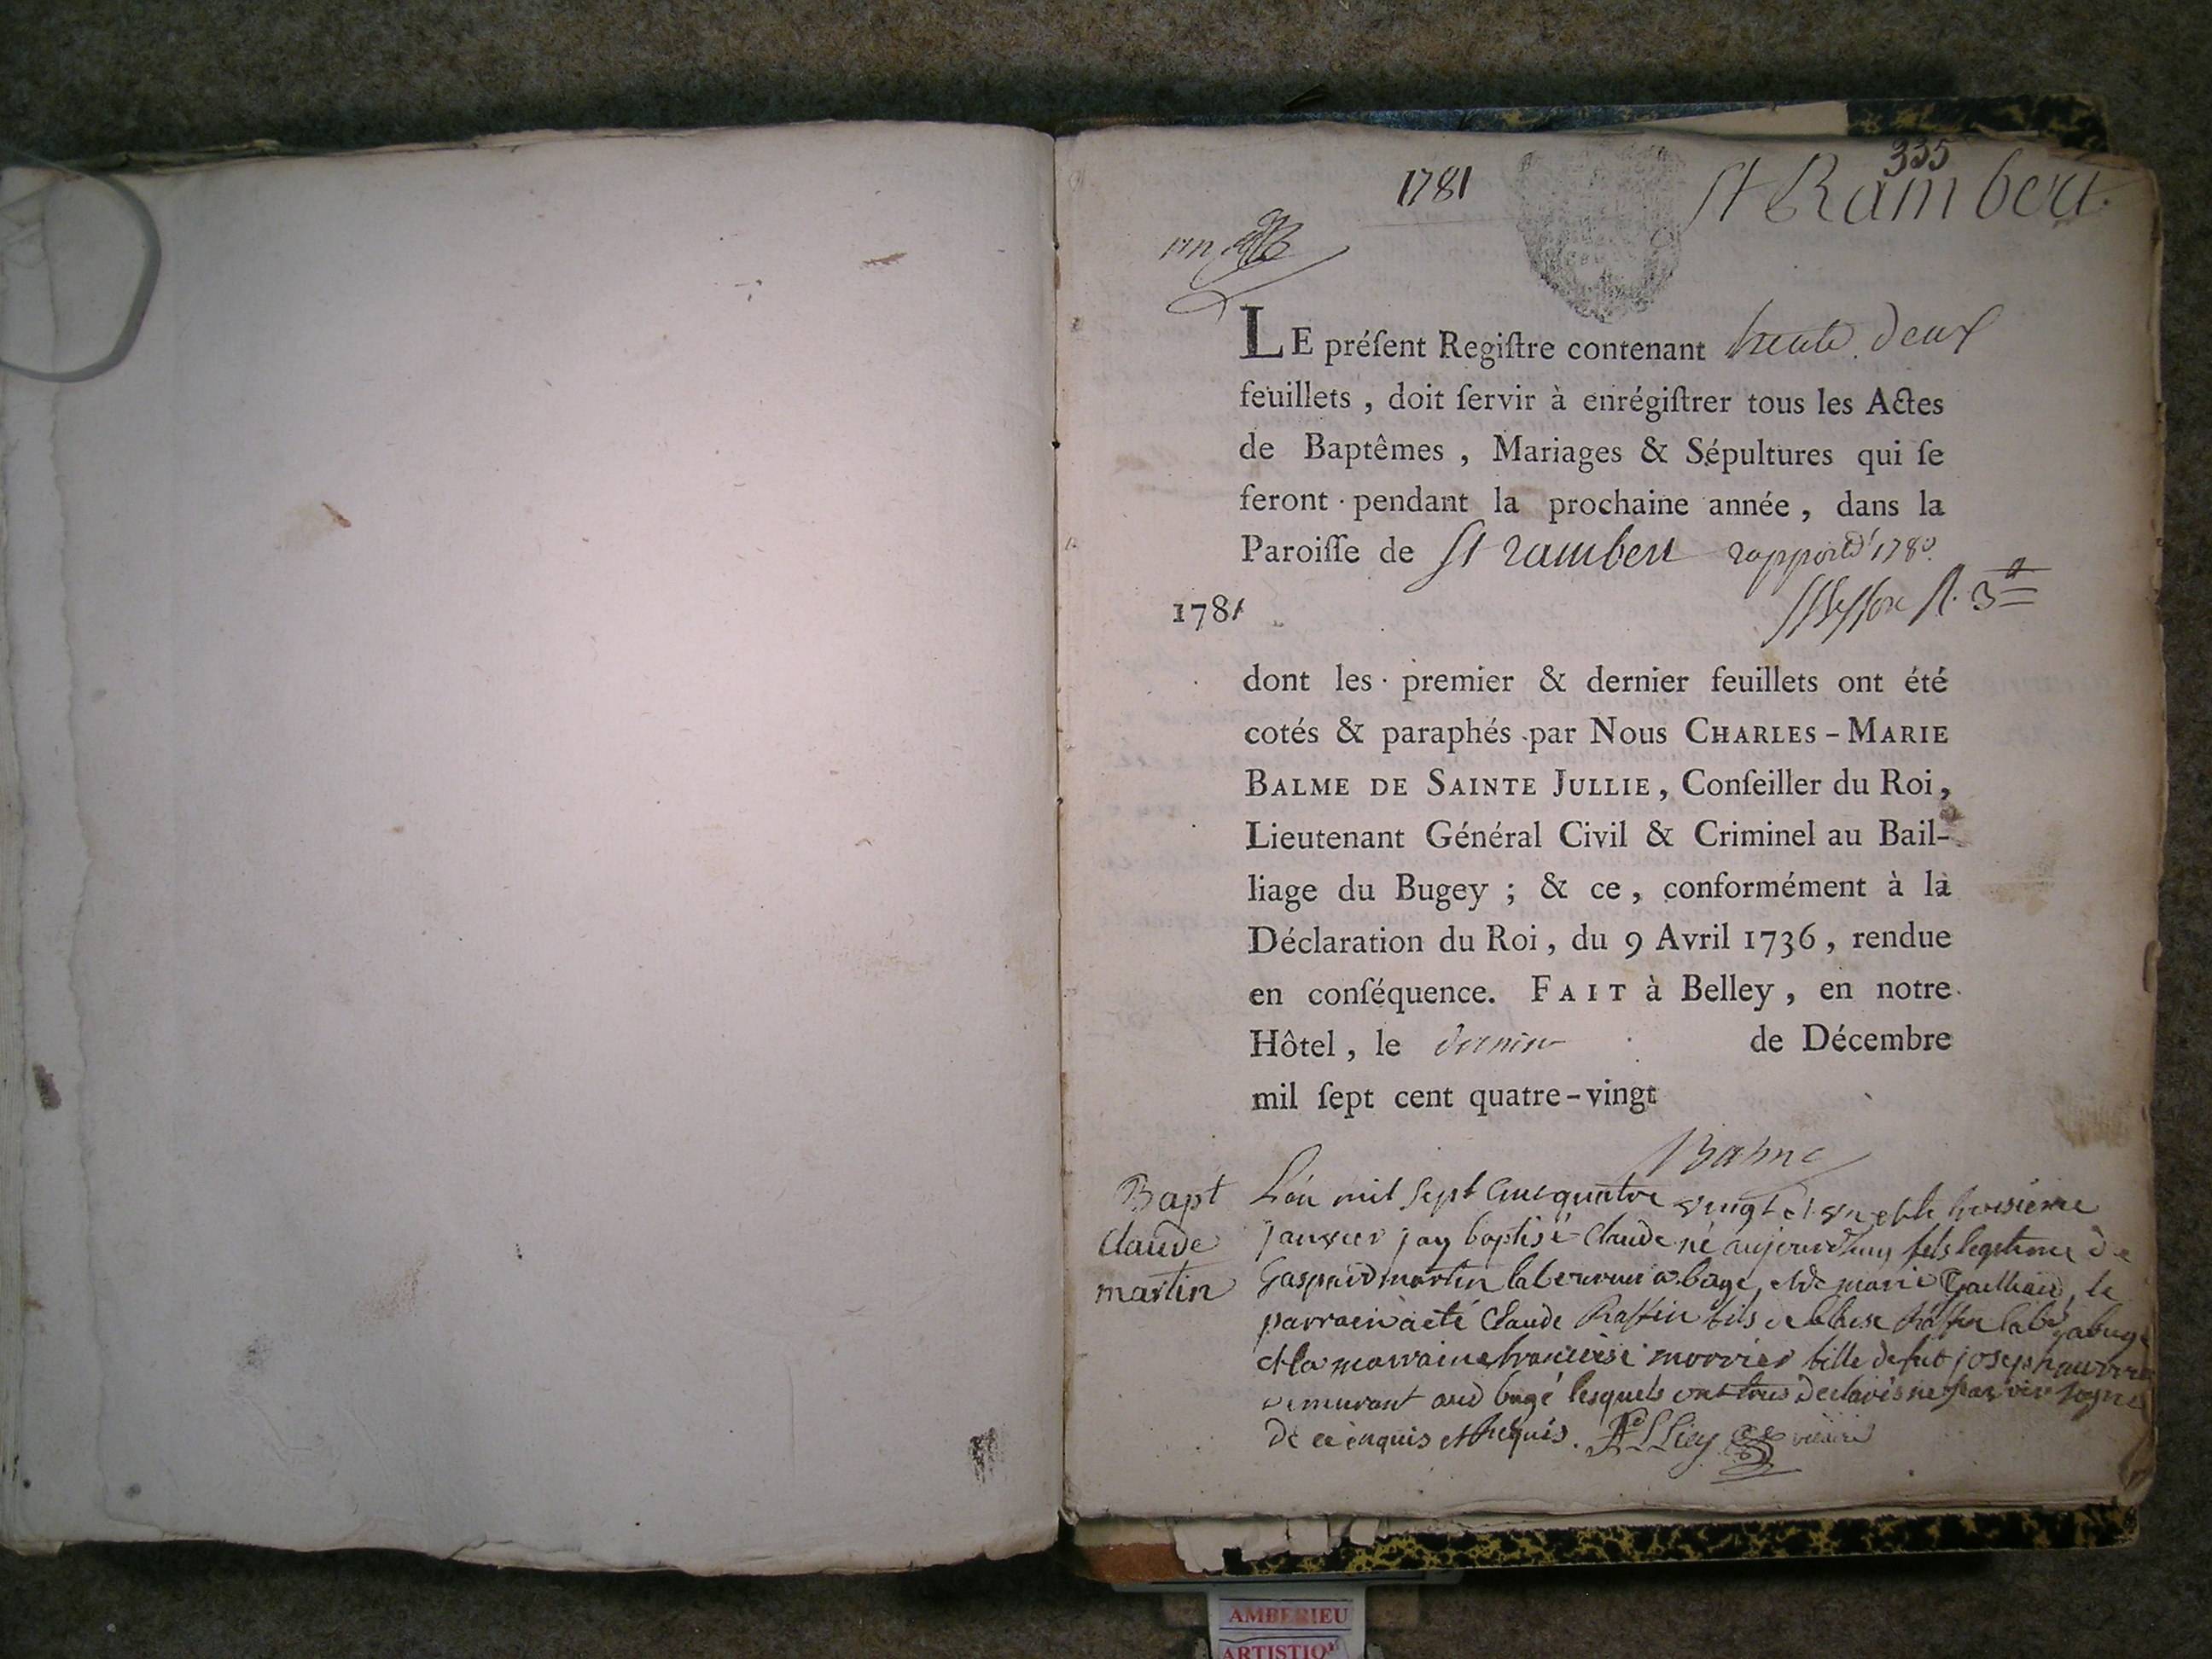 335
1781
St Rambert.
LE préſent Regiſtre contenant trente deux
feuillets , doit ſervir à enrégiſtrer tous les Actes
de Baptêmes , Mariages & Sépultures qui ſe
feront pendant la prochaine année , dans la
Paroiſſe de St rambert rapporté 1780
1781
dont les premier & dernier feuillets ont été
cotés & paraphés par Nous CHARLES-MARIE
BALME DE SAINTE JULLIE, Conſeiller du Roi,
Lieutenant Général Civil & Criminel au Bail-
liage du Bugey ; & ce, conformément à la
Déclaration du Roi, du 9 Avril 1736, rendue
en conſéquence. FAIT à Belley, en notre
Hôtel, le dernier de Décembre
mil ſept cent quatre-vingt
Balme
Bapt
Claude
martin
L'an mil sept cent quatre vingt et un et le troisieme
janvier jay baptisé Claude né aujourdhuy fils legitime de
Gaspard martin laboureur a bage, et de marie, le
parrain a eté Claude Raffin fils de Raffin lab^r a bugé
et la marraine francoise morrier fille de feu joseph
demurant aud bugé lesquels ont declarés ne scavoir signe
de ce enquis et requis. vicaire
AMBERIEU
ARTISTIQ